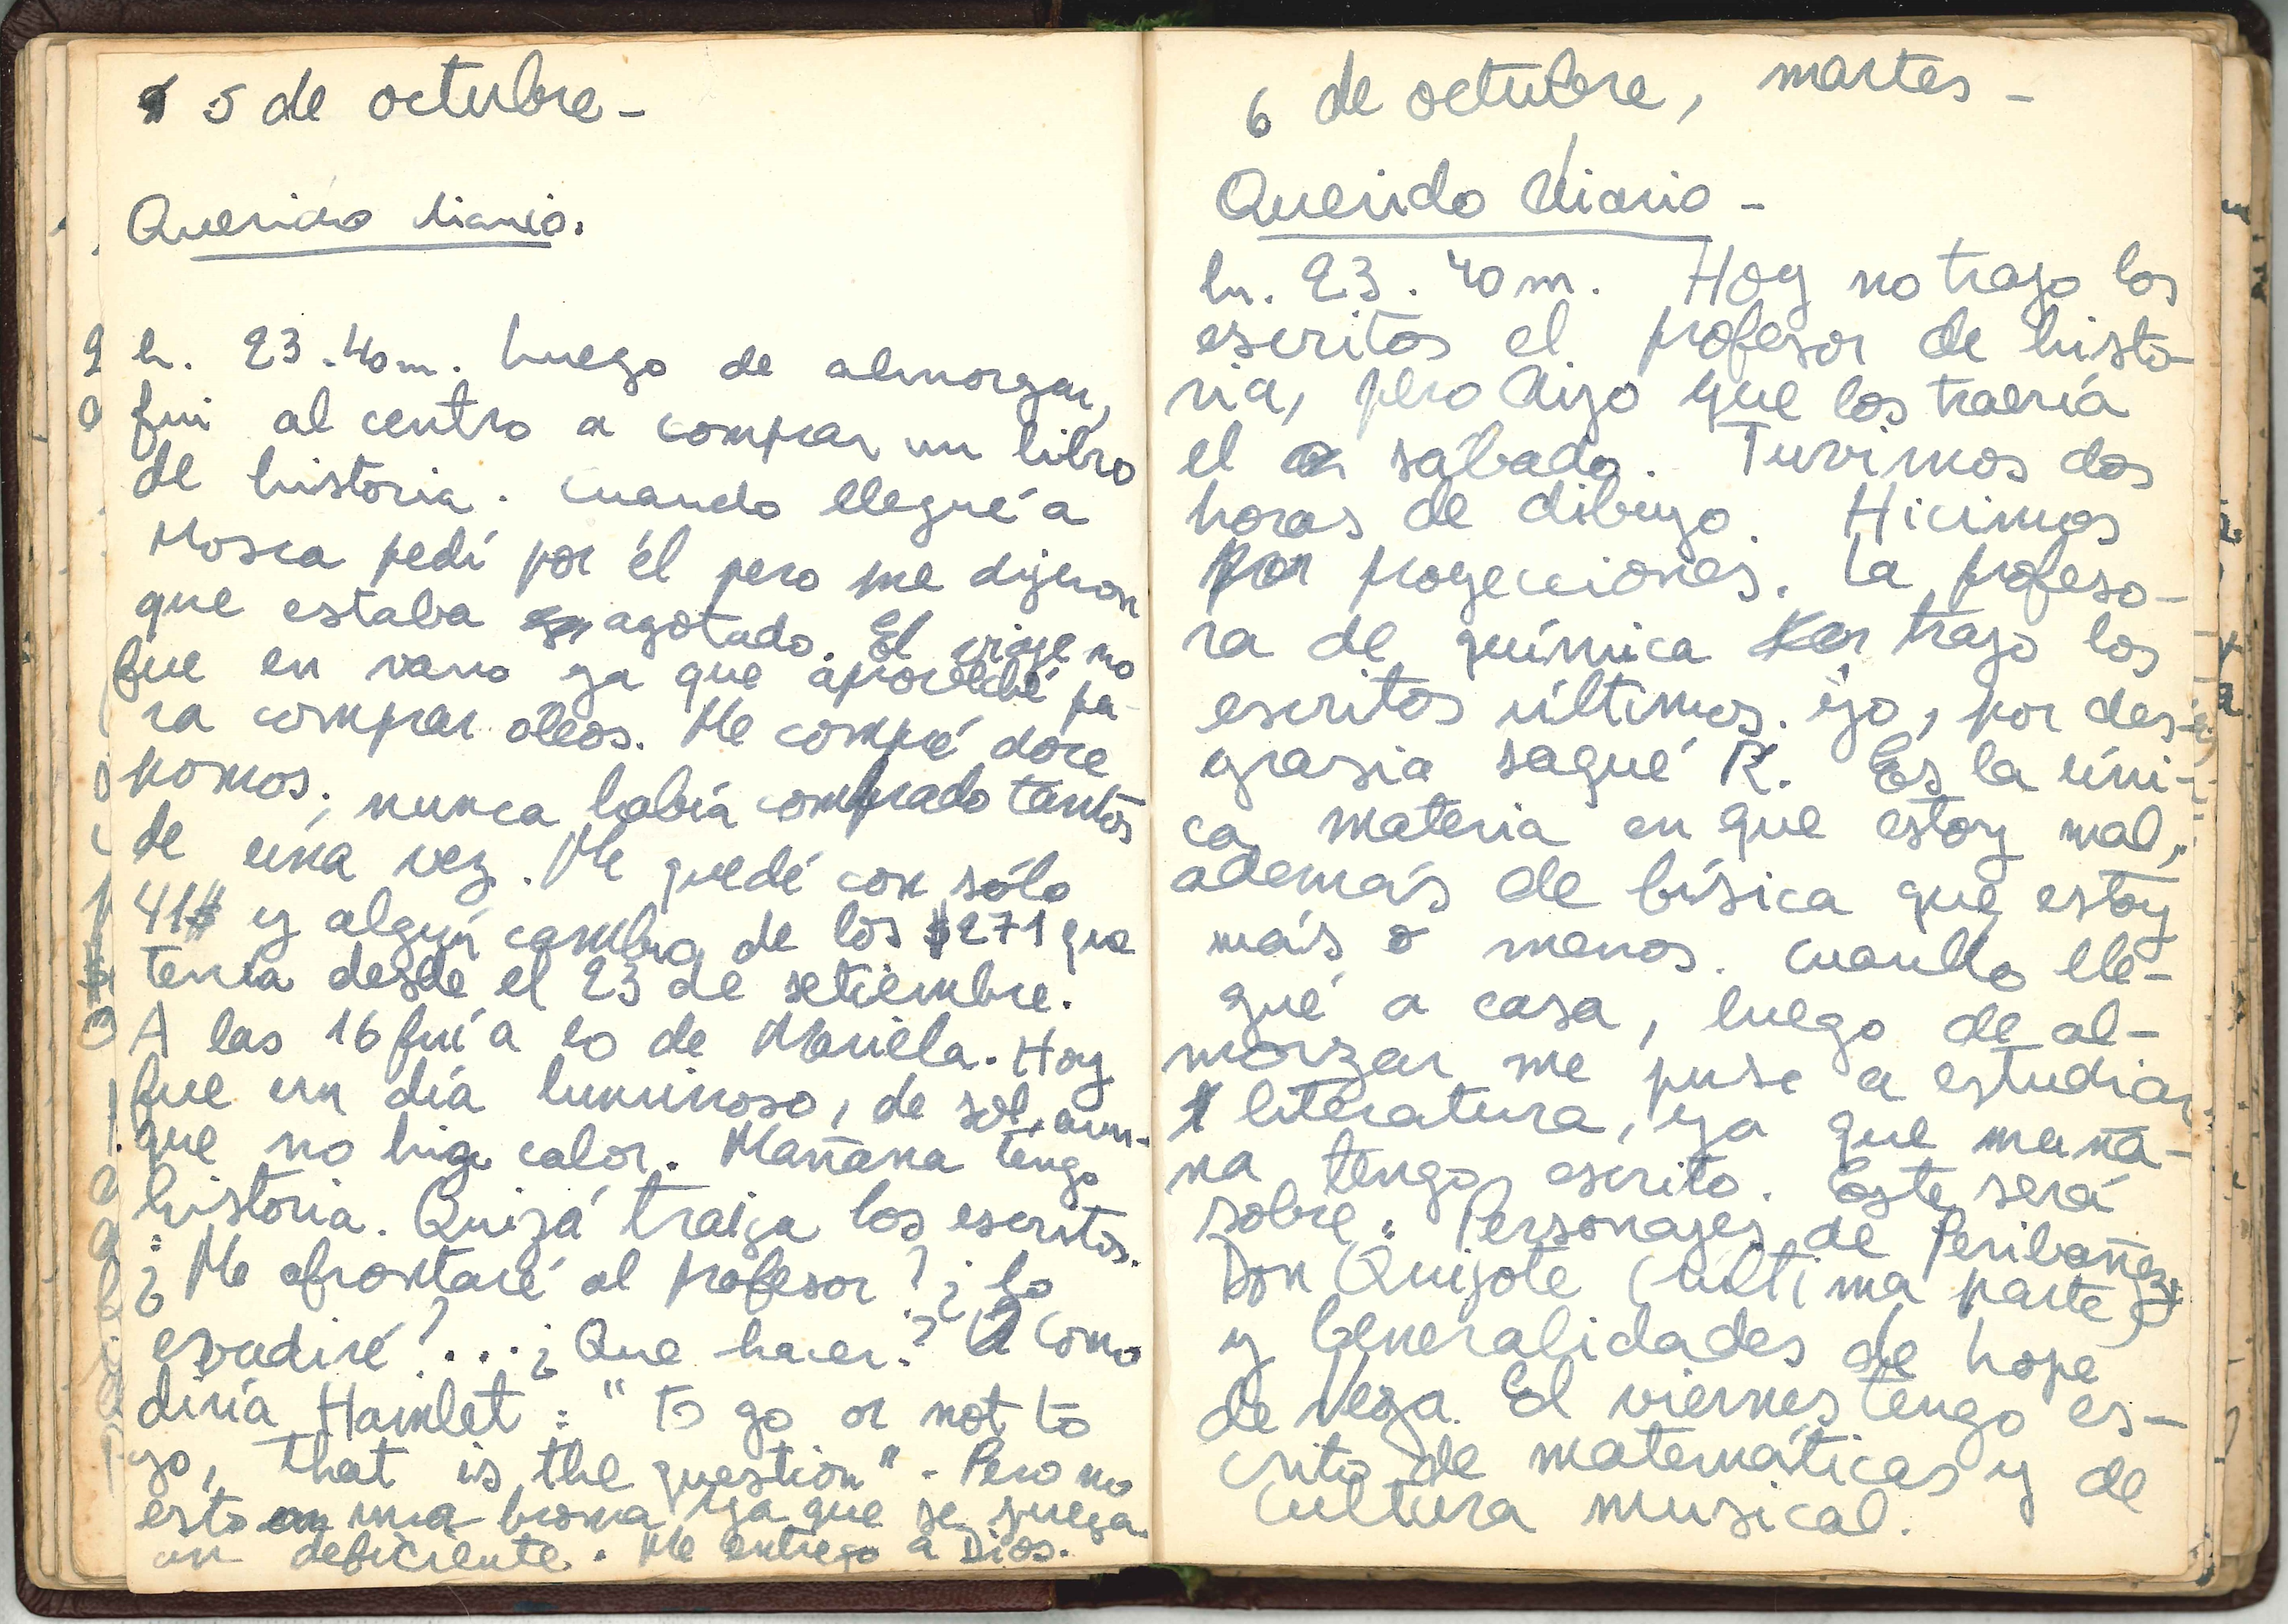 5 de octubre -
Querido diario.
h. 23.40m. Luego de almorzar,
fui al centro a comprar un libro
de historia. Cuando llegué a
Mosca pedí por él pero me dijeron
que estaba agotado. El viaje no
fue en vano ya que aproveché pa-
ra comprar oleos. Me compré doce
pomos; nunca había comprado tantos
de una vez. Me quedé con sólo
41$ y algún cambio de los $271 que
tenía desde el 23 de setiembre.
A las 16 fuí a lo de Mariela. Hoy
fue un día luminoso, de sol, aun-
que no hizo calor. Mañana tengo
historia. Quizá traiga los escritos.
¿Me afrontaré al profesor? ¿Lo
evadiré?... ¿Que hacer? Como
diría Hamlet: "To go or not to
go, that is the question". Pero no
esto una broma ya que se juega
un deficiente. Me entrego a Dios.
6 de octubre, martes -
Querido diario -
h. 23.40m. Hoy no trajo los
escritos el profesor de histo-
ria, pero dijo que los traería
el sábado. Tuvimos dos
horas de dibujo. Hicimos
proyecciones. La profeso-
ra de química trajo los
escritos últimos. Yo, por des-
grasia saqué R. Es la úni-
ca materia en que estoy mal,
además de física que estoy
más o menos. Cuando lle-
gué a casa, luego de al-
morzar me puse a estudiar
literatura, ya que maña-
na tengo escrito. Este será
sobre: Personajes de Peribañez;
Don Quijote (última parte)
y Generalidades de Lope
de Vega. El viernes tengo es-
crito de matemáticas y de
cultura musical.